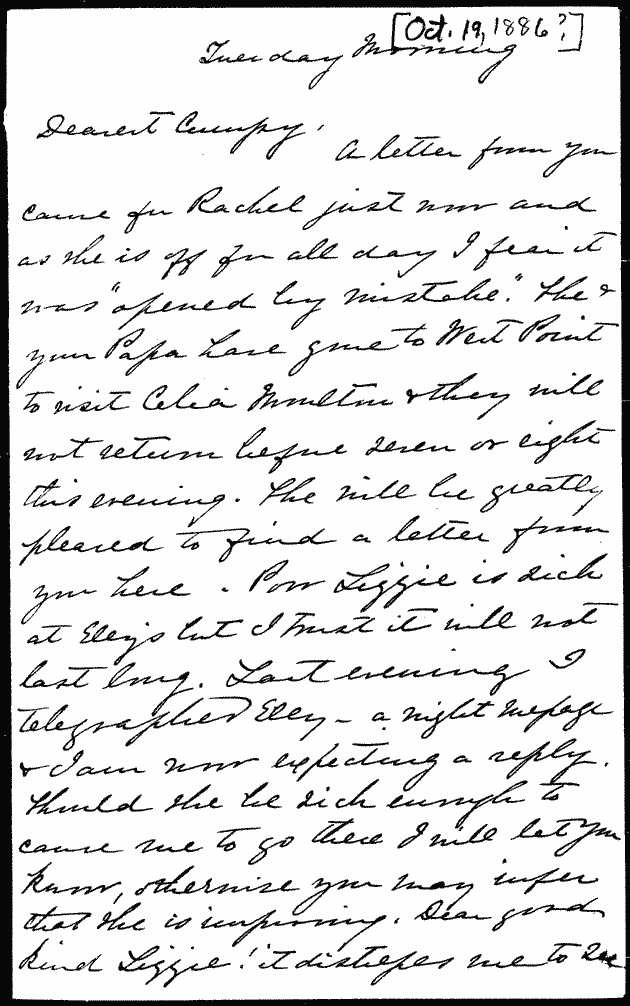 [Oct. 19, 1886?]
Tuesday Morning
Dearest Cumpsy,
A letter from you
came for Rachel just now and
as she is off for all day I fear it
was "opened by mistake." She &
your Papa have gone to West Point
to visit Celia Moulton & they will
not return before seven or eight
this evening. She will be greatly
pleased to find a letter from
you here. Poor Lizzie is sick
at Elley's but I trust it will not
last long. Last evening I
telegraphed Elley – a night message
& I am now expecting a reply.
Should she be sick enough to
cause me to go there I will let you
know, otherwise you may infer
that she is improving. Dear good
kind Lizzie! it distresses me to see